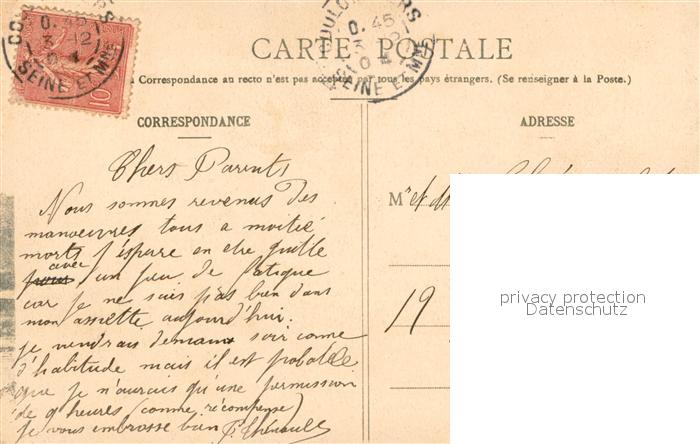 COULOMMIERS
SEINE ET MNE
CARTE POSTALE
la Correspondance au recto n'est pas acceptée par tous les pays étrangers. (Se renseigner à la Poste.)
CORRESPONDANCE
ADRESSE
Chers Parents
Nous sommes revenus des
manoeuvres tous a moitié
morts j'éspure en etre quitte
avec un peu de fatigue
car je ne suis pas bien dans
mon assiette aujourd'hui.
je viendrais demain soir come
d'habitude mais il est probable
que je n'aurais qu'une permission
de 9 heures (comme récompense)
Je vous embrasse bien
Mr et
19
10
privacy protection
Datenschutz